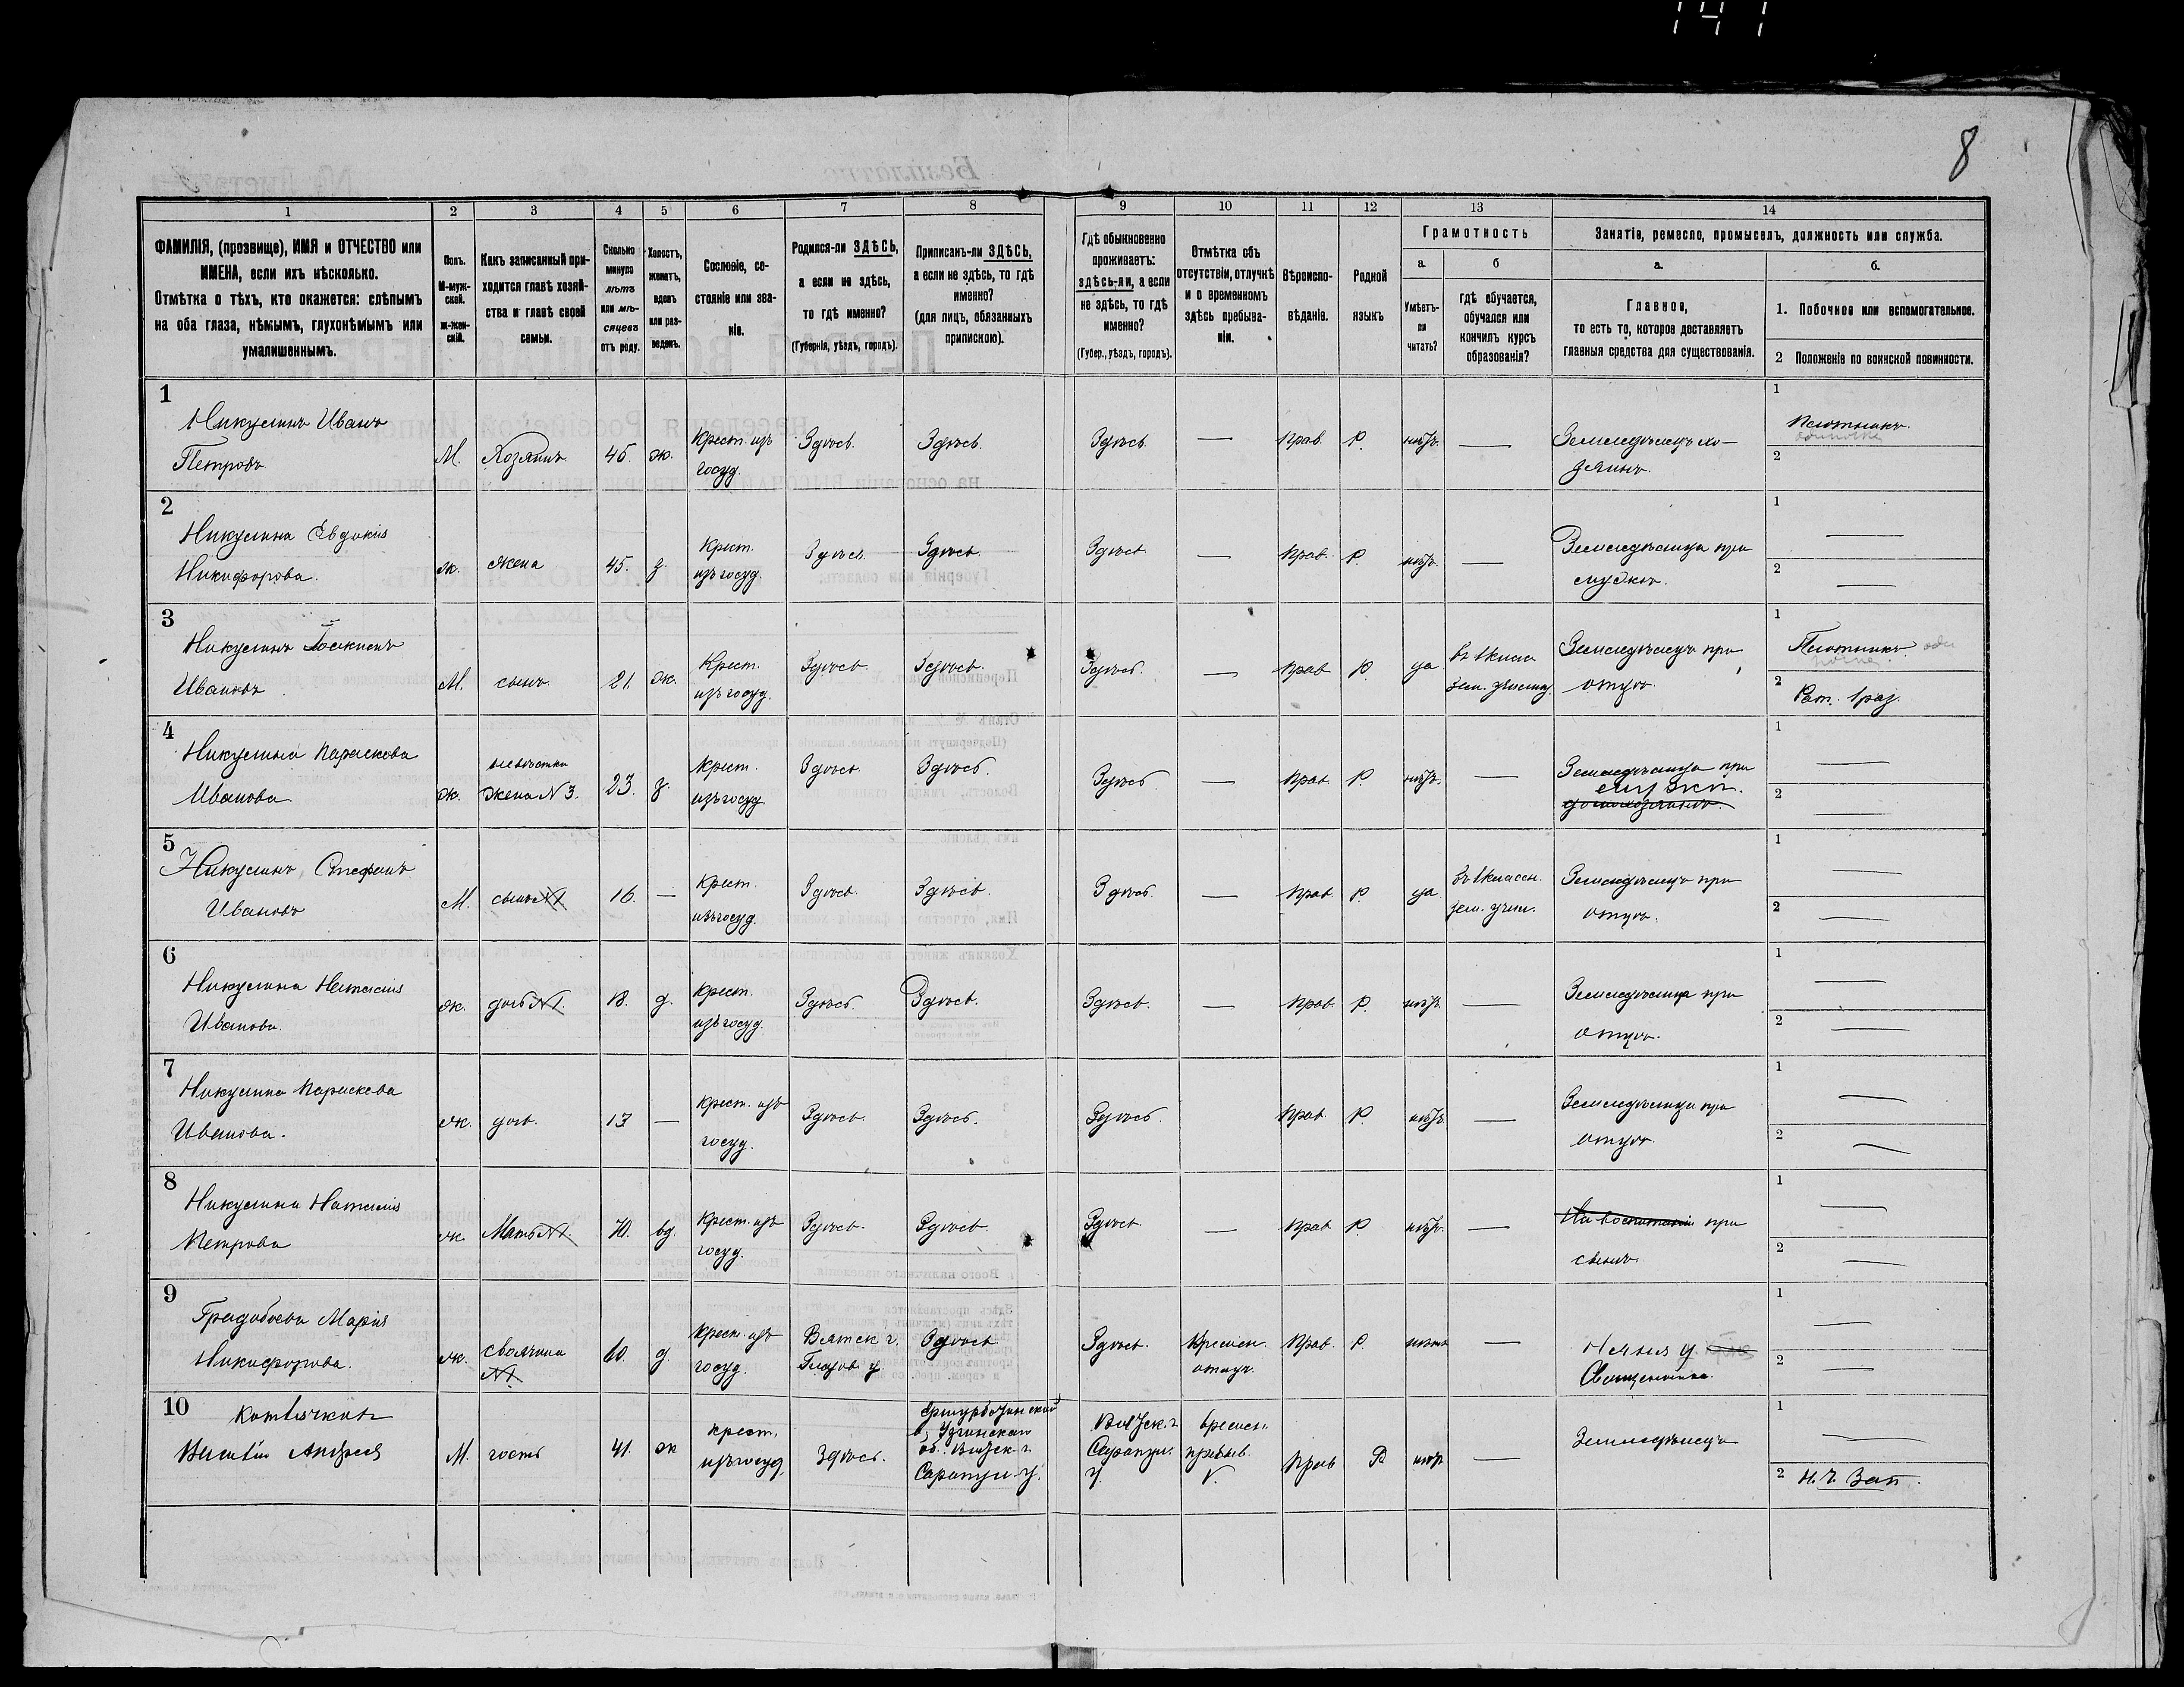 141
8
1 2 3 4 5 6 7 8 9 10 11 12 13 14
ФАМИЛІЯ, (прозвище), ИМЯ и ОТЧЕСТВО или
ИМЕНА, если ихъ нѣсколько.
Отмѣтка о тѣхъ, кто окажется: слѣпымъ
на оба глаза, нѣмымъ, глухонѣмымъ или
умалишеннымъ.
Полъ.
М-муж-
ской.
ж-жен-
скій.
Какъ записанный при-
ходится главѣ хозяй-
ства и главѣ своей
семьи.
Сколько
минуло
лѣтъ
или мѣ-
сяцевъ
отъ роду.
Холостъ,
женатъ,
вдовъ
или раз-
веденъ.
Сословіе, со-
стояніе или зва-
ніе.
Родился-ли ЗДѢСЬ,
а если не здѣсь,
то гдѣ именно?
(Губернія, уѣздъ, городъ).
Приписанъ-ли ЗДѢСЬ,
а если не здѣсь, то гдѣ
именно?
(для лицъ, обязанныхъ
припискою).
Гдѣ обыкновенно
проживаетъ:
здѣсь-ли, а если
не здѣсь, то гдѣ
именно?
(Губер., уѣздъ, городъ).
Отмѣтка объ
отсутствіи, отлучкѣ
и о временномъ
здѣсь пребыва-
ніи.
Вѣроиспо-
вѣданіе.
Родной
языкъ
Грамотность
а.
Умѣетъ-
ли
читать?
б
гдѣ обучается,
обучался или
кончилъ курсъ
образованія?
Занятіе, ремесло, промыселъ, должность или служба.
а.
Главное,
то есть то, которое доставляетъ
главныя средства для существованія.
б.
1. Побочное или вспомогательное.
2 Положеніе по воинской повинности.
1
Никулинъ Иванъ
Петровъ
М. Хозяинъ 45. ж. Крест. изъ
госуд.
Здѣсь. Здѣсь. Здѣсь — Прав. Р. нѣтъ. —
Земледѣлецъ хо-
зяинъ.
1 Плотникъ.
2
2
Никулина Евдокія
Никифорова.
ж. жена 45. з. Крест.
изъ госуд.
Здѣсь. Здѣсь. Здѣсь — Прав. Р. нѣтъ. —
Земледѣлица при
мужѣ.
1 —
2 —
3
Никулинъ
Ивановъ
М. сынъ 21. ж. Крест.
изъ госуд.
Здѣсь. Здѣсь. Здѣсь. — Прав Р. да
въ 1 класн
зем. училищ.
Земледѣлецъ при
отцѣ.
1 Плотникъ.
2 Рат. 1 раз.
4
Никулина Параскева
Иванова
ж. невѣстка
жена N 3. 23. з. Крест.
изъ госуд
Здѣсь. Здѣсь. Здѣсь — Прав. Р. нѣтъ. —
Земледѣлица при
мужѣ.
1 —
2 —
5
Никулинъ Стефанъ
Ивановъ
М. сынъ N1 16. — Крест.
изъ госуд.
Здѣсь. Здѣсь. Здѣсь — Прав Р. да
въ 1 классн.
зем. учил.
Земледѣлецъ при
отцѣ.
1 —
2 —
6
Никулина Наталія
Иванова.
ж. дочь N1. 18. д. Крест.
изъ госуд.
Здѣсь Здѣсь. Здѣсь. — Прав. Р. нѣтъ. —
Земледѣлица при
отцѣ.
1 —
2 —
7
Никулина Параскева
Иванова.
ж. дочь. 13 — Крест. изъ
госуд.
Здѣсь Здѣсь. Здѣсь. Прав Р. нѣтъ —
Земледѣлица при
отцѣ.
1 —
2 —
8
Никулина Наталія
Петрова
ж. Мать N1. 70. вд. Крест. изъ
госуд.
Здѣсь. Здѣсь. Здѣсь. — Прав Р. нѣтъ. —
На воспитаніи при
сынѣ.
1 —
2 —
9
Градобоева Марія
Никифорова.
ж. своячина
N1. 60. д. Крест. изъ
госуд.
Вятск г.
Глазов у.
Здѣсь Здѣсь. Времен.
отлуч.
Прав. Р. нѣтъ —
Нянья у
Священника.
1 —
2 —
10
М. гость 41. ж Крест.
изъ госуд.
Здѣсь.
об. Вятск. г.
Сарапул. у.
Вятск. г.
Сарапул.
у.
времен.
пребыв.
V.
Прав Р нѣтъ —
Земледѣлецъ
1 —
2 Н. Ч. Зап.